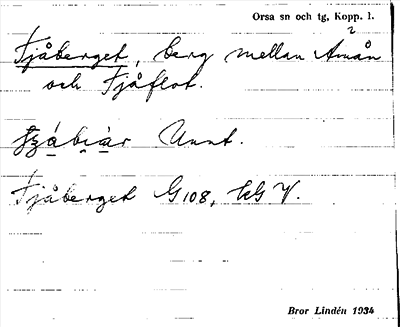 Orsa sn och tg, Kopp. l.
Fjåberget, berg mellan Amån
och Fjåflot.
Unnt.
Fjåberget G 108, HG V.
Bror Lindén 1934